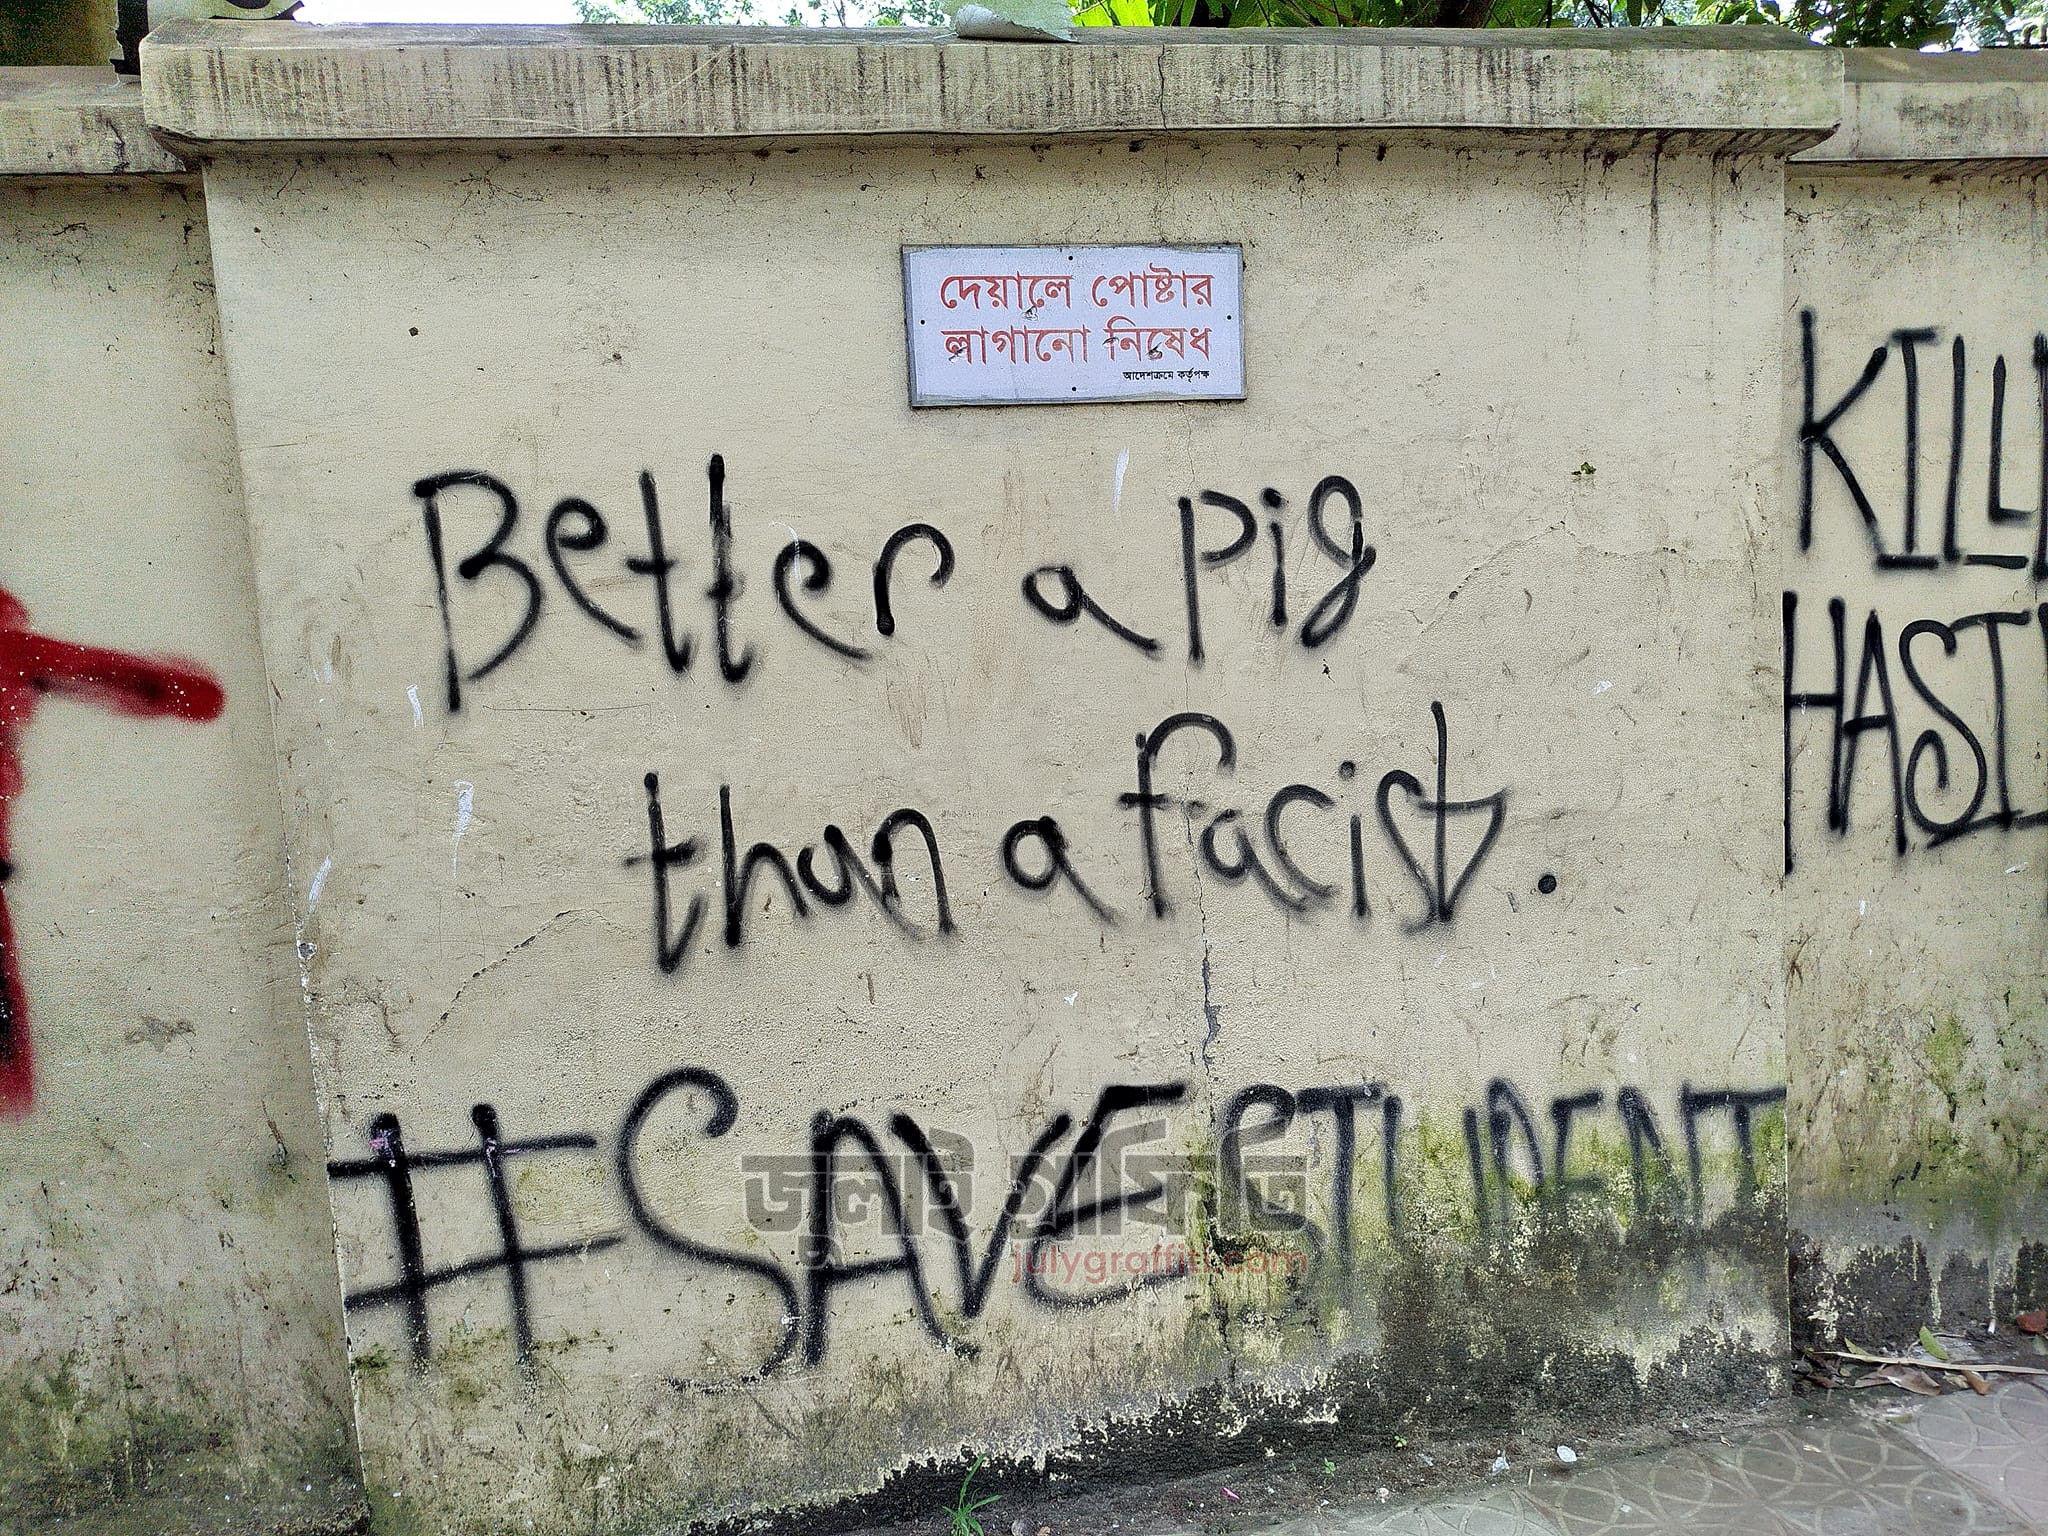 দেয়ালে পোষ্টার
লাগানো নিষেধ
আদেশক্রমে কর্তৃপক্ষ
Better a pig
than a facist.
#SAVESTUDENT
KILL
HASI
জুলাই গ্রাফিতি
julygraffiti.com